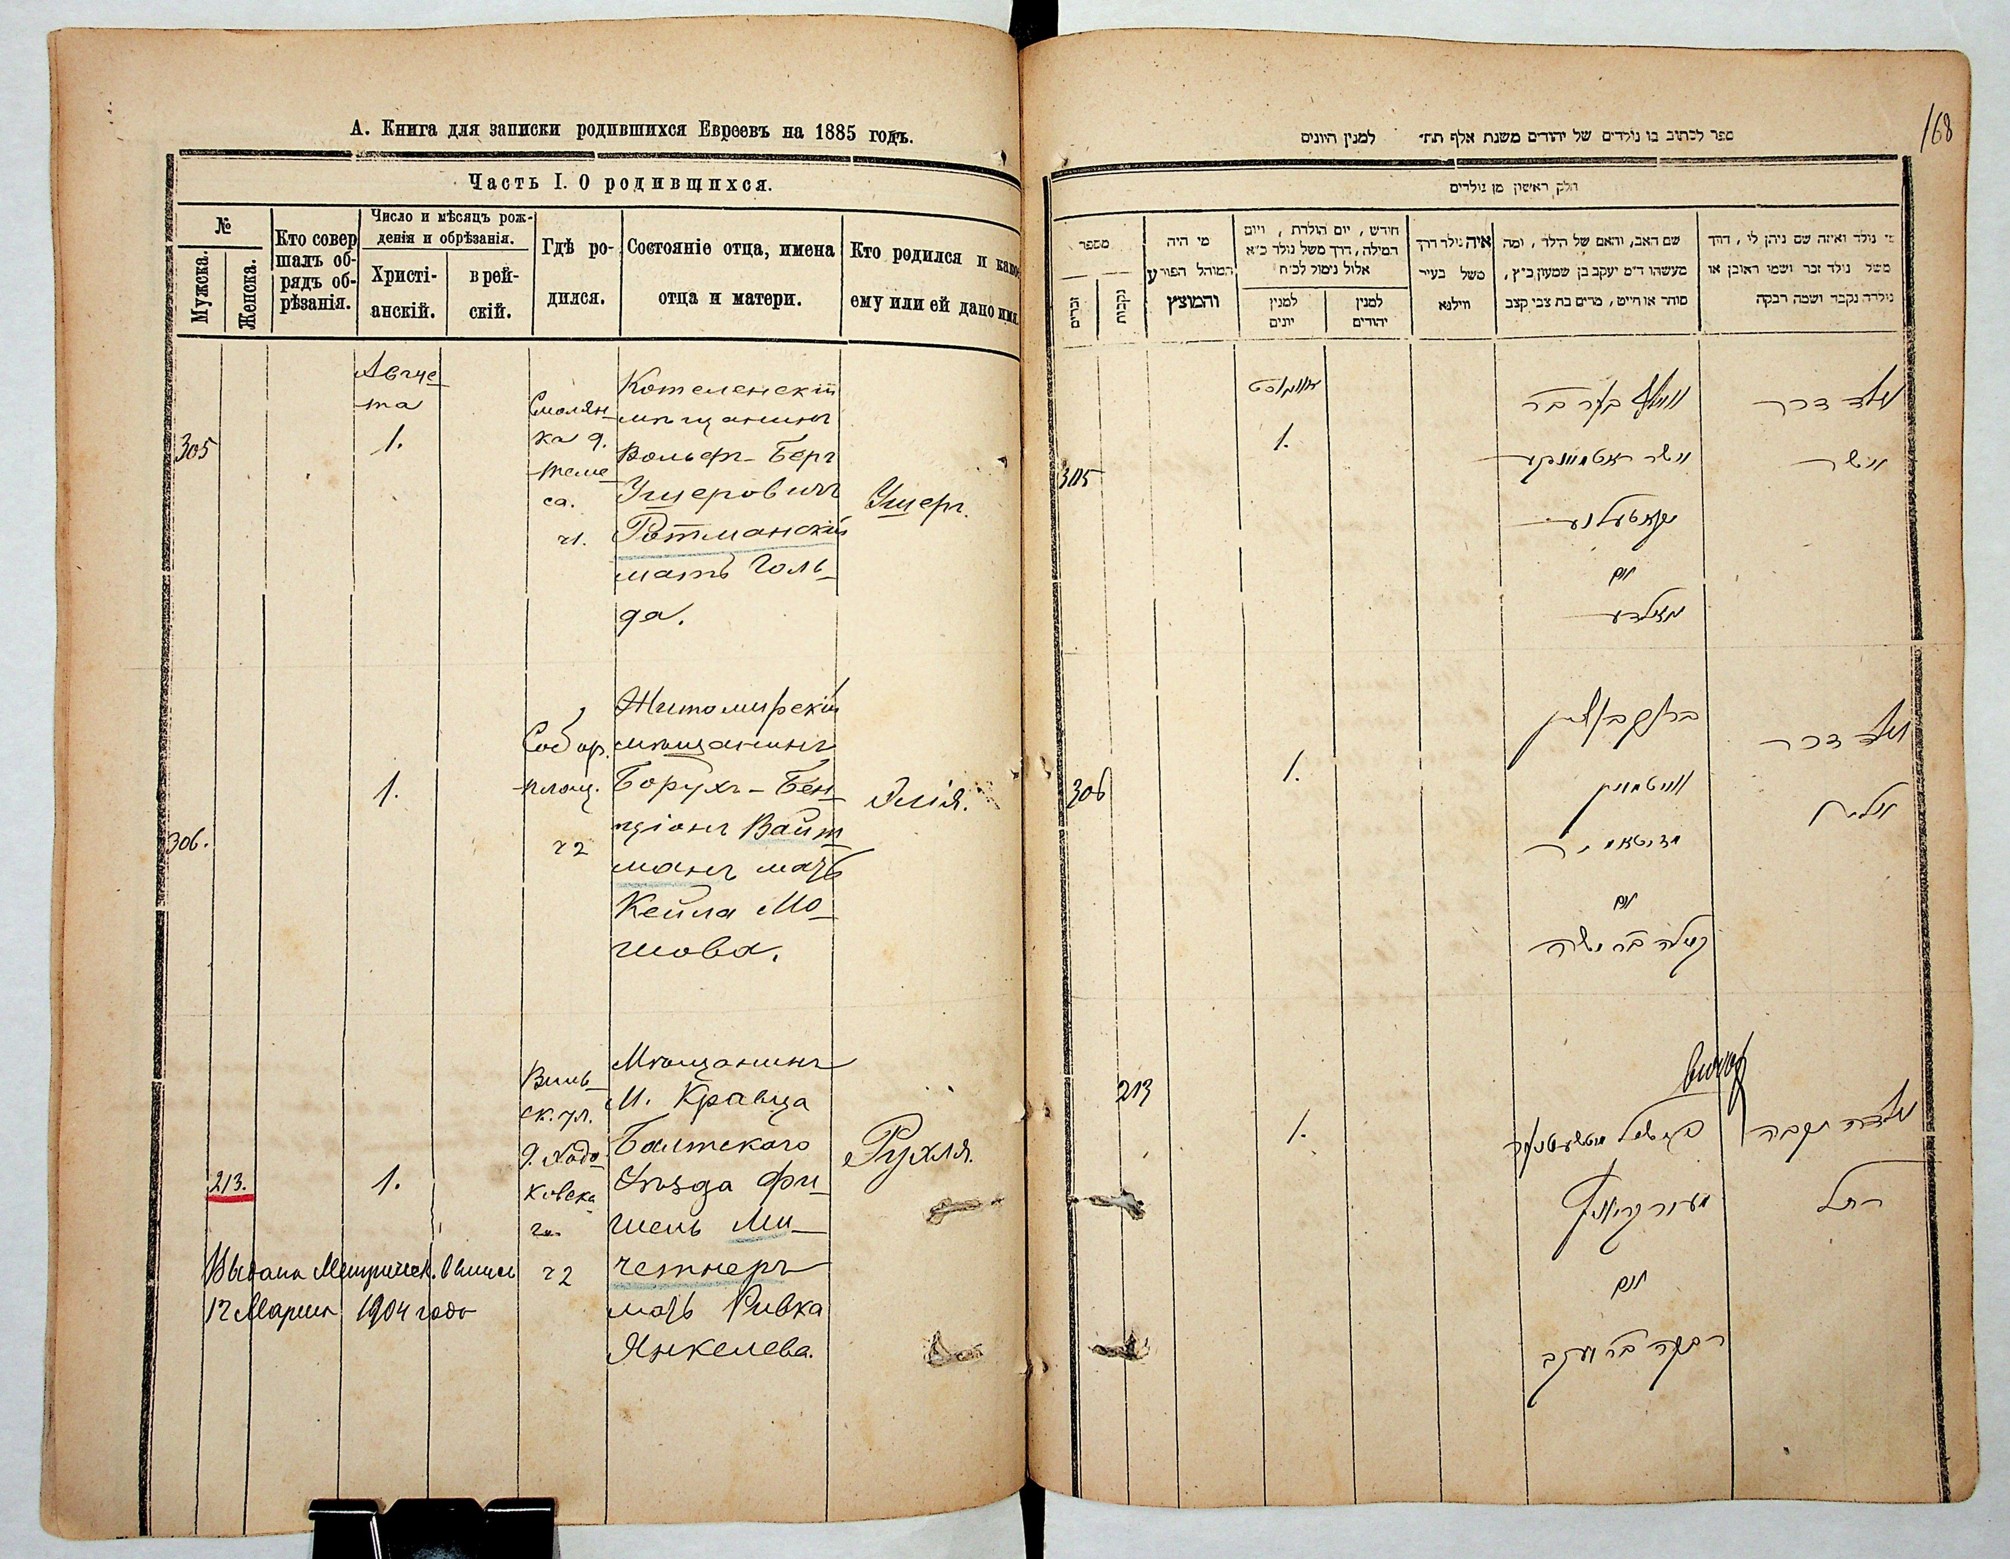 А. Книга для записки родившихся Евреевъ на 1885 годъ.
Часть I. О родившихся.
№
Мужска.
Женска.
Кто совер
шалъ об-
рядъ об-
рѣзанія.
Число и мѣсяцъ рож-
денія и обрѣзанія.
Христі-
анскій.
в рей-
скій.
Гдѣ ро-
дился.
Состояніе отца, имена
отца и матери.
Кто родился и какое
ему или ей дано имя.
305
Авгус-
та
1.
Смолян-
ка д.
са.
ч1.
Котеленскій
мѣщанинъ
Вольфъ-Беръ
Ушеровичъ
Ротманскій
мать Голь-
да.
Ушеръ.
306.
1.
Собор.
площ.
ч2
Житомирскій
мѣщанинъ
Борухъ-Бен-
ціонъ Вайт-
манъ мать
Кейла Мо-
шова.
Элія.
213.
1.
Виль-
ск. ул.
д. Ходо-
ковска
го
ч2
Мѣщанинъ
М. Кравца
Балтскаго
Уѣзда Фи-
шель Ми-
четнеръ
мать Ривка
Янкелева.
Рухля.
Выдана Метрическ. Выпись
12 Марта 1904 года
168
ספר לכתוב בו נולדים של יהודים משנת אלף תת״ למנין היונים
חלק ראשון מן נולדים
מספר
זכרים
נקבות
מי היה
המוהל הפורע
והמוצץ
חודש, יום הולדת, ויום
המילה, דרך משל נולד כ״א
אלול נימול לכ״ח
למנין
יונים
למנין
יהודים
איה נולד דרך
משל בעיר
ווילנא
שם האב, והאם של הילד, ומה
מעשהו ד״מ יעקב בן שמעון כ״ץ,
סוחר או חייט, מרים בת צבי קצב
מי נולד ואיזה שם ניתן לו, דרך
משל נולד זכר ושמו ראובן או
נולדה נקבה ושמה רבקה
305
אווגוסט
1.
וואלף בער בר
אשר ראטמאנסקי
ואם
גאלדע
נולד זכר
אשר
306
1.
ברוך בן ציון
ווייטמאן
זיטאמיר
ואם
קיילה בת משה
נולד זכר
אליה
213
1.
פישל מיטשעטנער
ואם
רבקה בת יעקב
נולדה נקבה
רחל